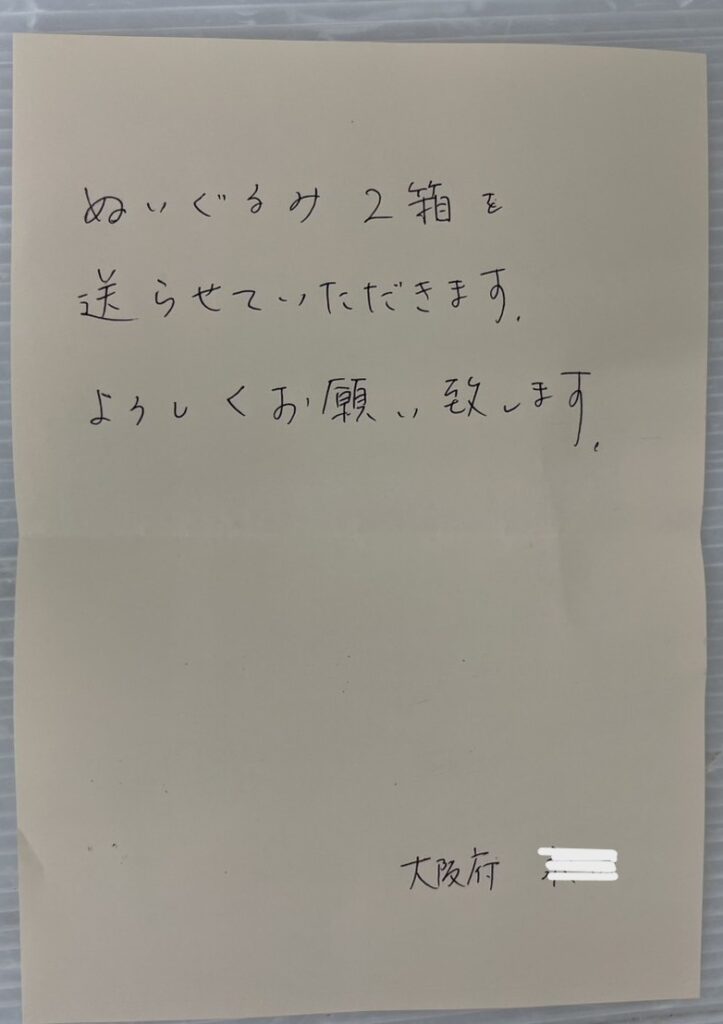 ぬいぐるみ 2箱を
送らせていただきます.
よろしくお願い致します.
大阪府